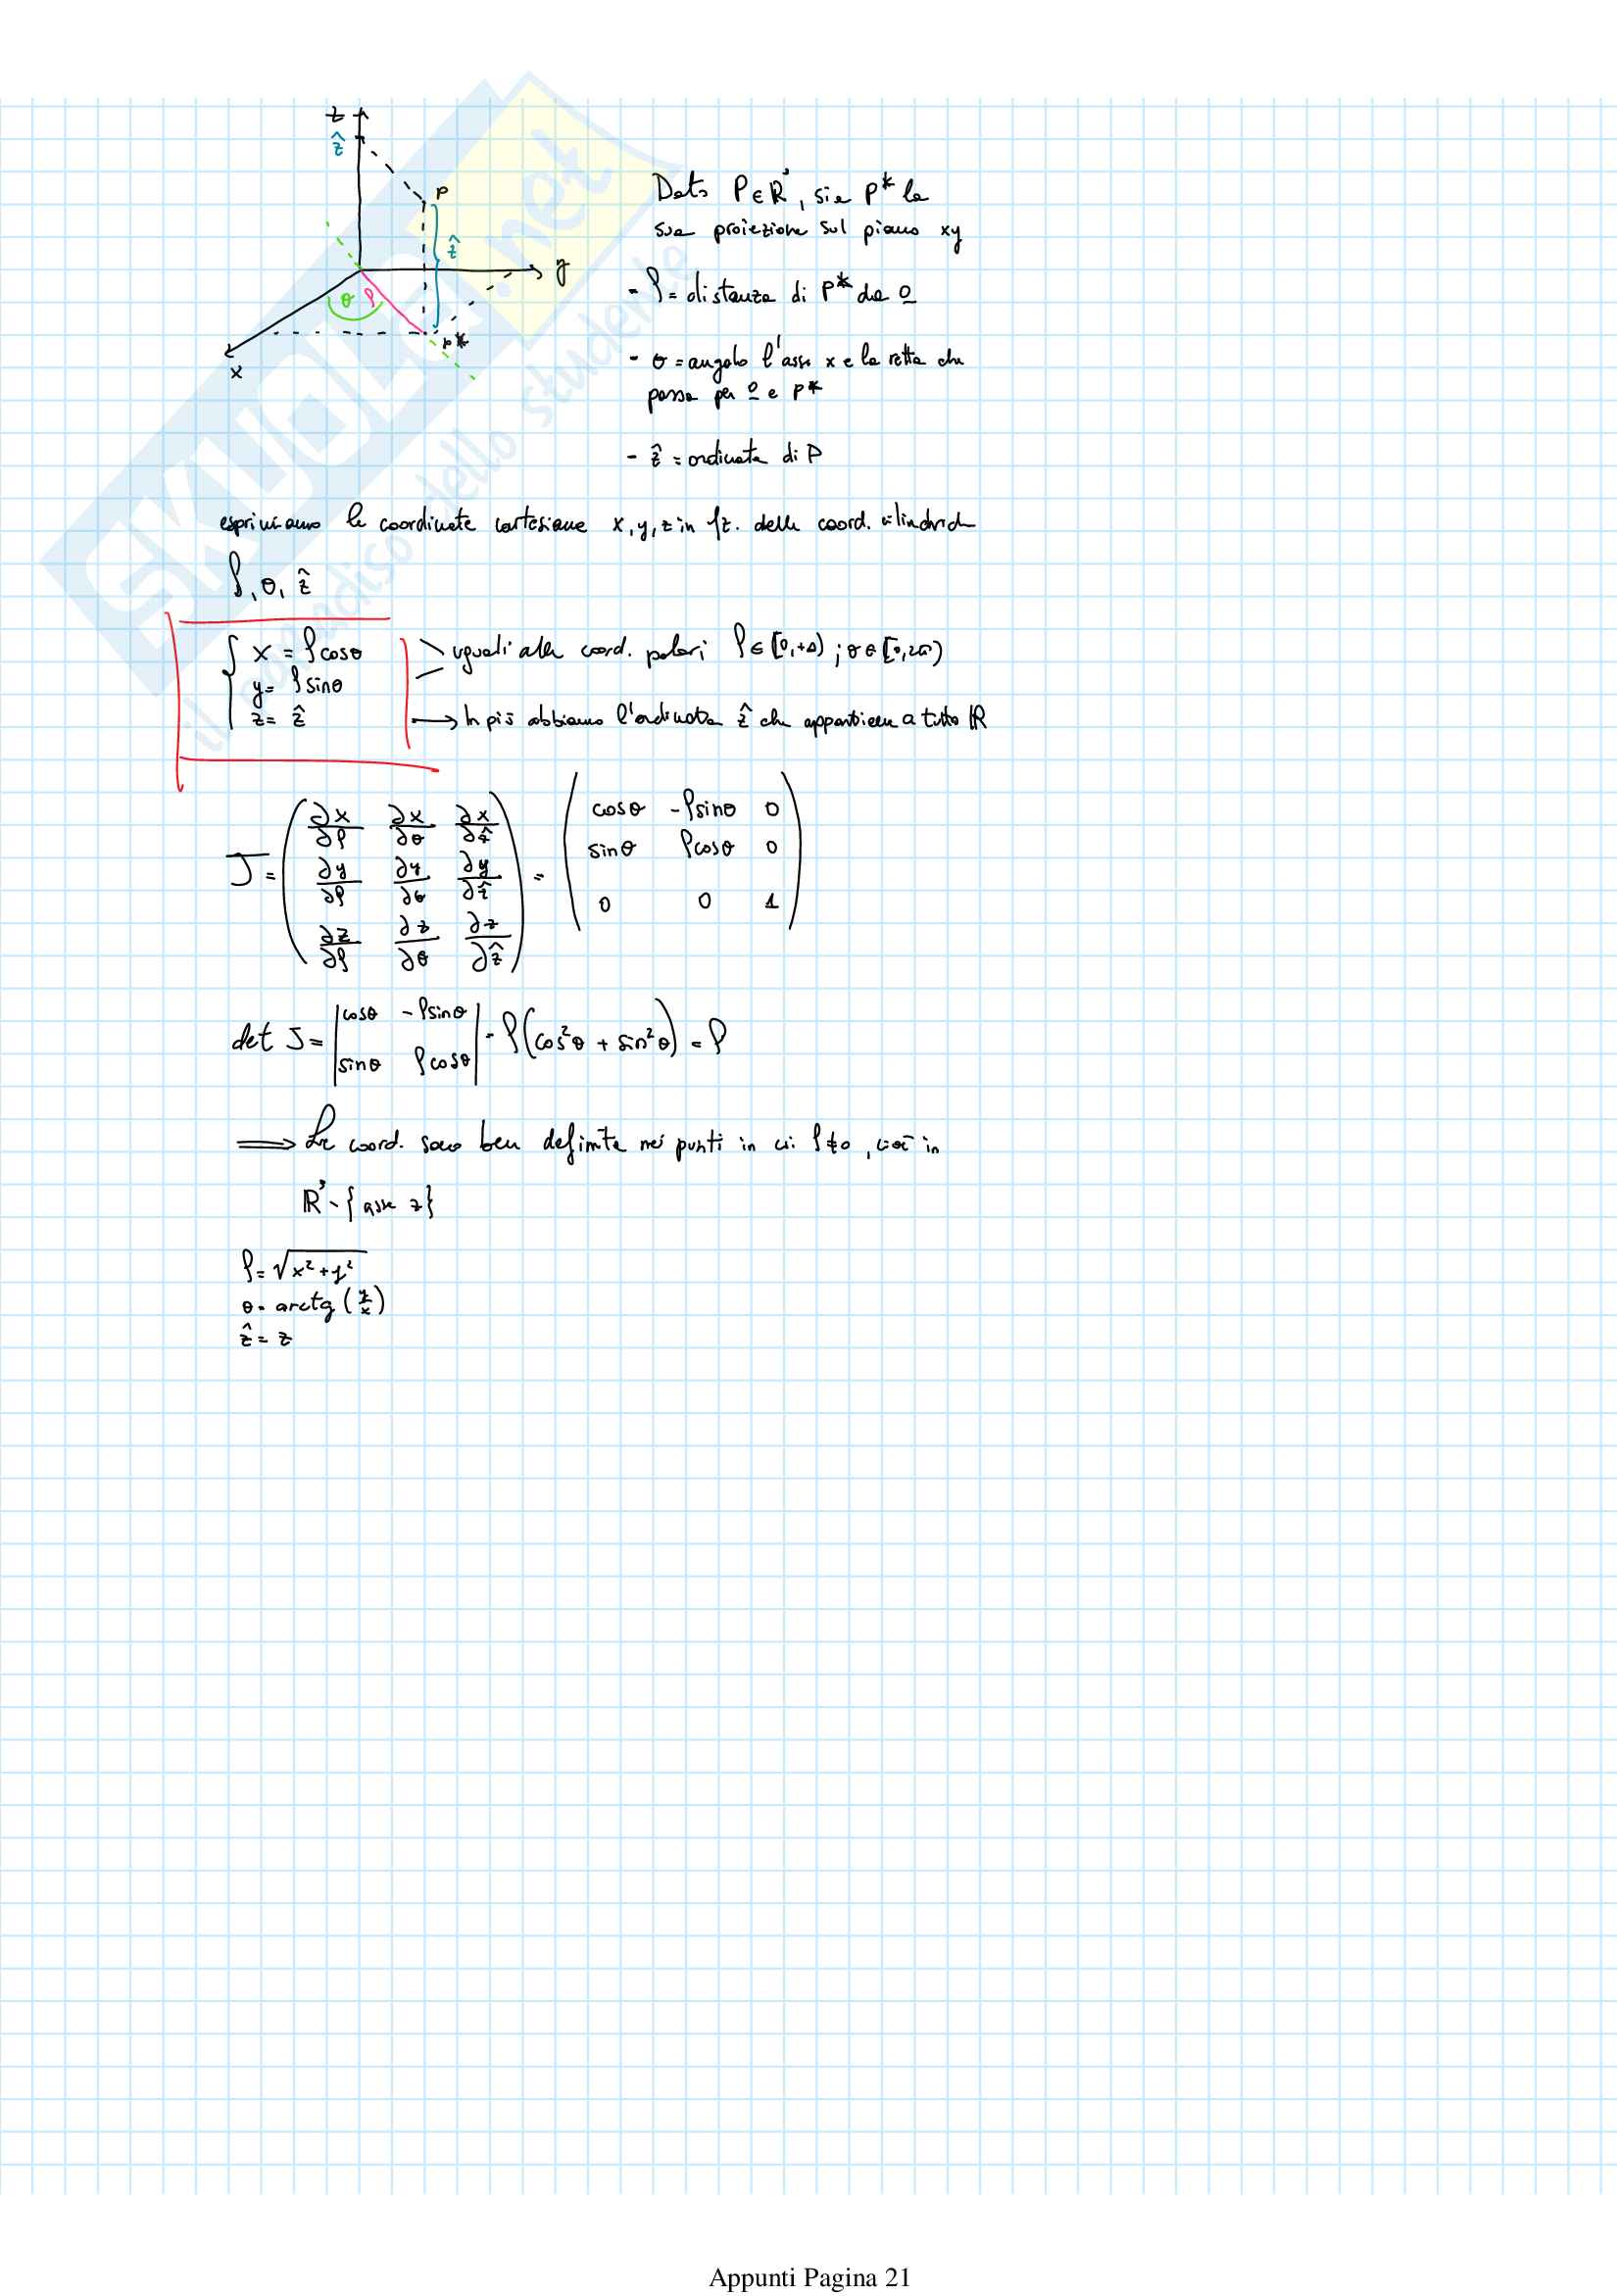 z
ẑ
P
ẑ
y
θ ρ
P*
x
Dato P∈ℝ³, sia P* la
sua proiezione sul piano xy
- ρ = distanza di P* da O
- θ = angolo l'asse x e la retta che
passa per O e P*
- ẑ = ordinata di P
esprimiamo le coordinate cartesiane x, y, z in fz. delle coord. cilindriche
ρ, θ, ẑ
x = ρcosθ
y = ρsinθ
z = ẑ
uguali alle coord. polari ρ∈[0,+∞) ; θ∈[0,2π)
→ In più abbiamo l'ordinata ẑ che appartiene a tutto ℝ
J = ( ∂x/∂ρ ∂x/∂θ ∂x/∂ẑ
∂y/∂ρ ∂y/∂θ ∂y/∂ẑ
∂z/∂ρ ∂z/∂θ ∂z/∂ẑ ) =
( cosθ -ρsinθ 0
sinθ ρcosθ 0
0 0 1 )
det J = | cosθ -ρsinθ
sinθ ρcosθ | = ρ(cos²θ + sin²θ) = ρ
⟹ Le coord. sono ben definite nei punti in cui ρ≠0, cioè in
ℝ³ - {asse z}
ρ = √x²+y²
θ = arctg (y/x)
ẑ = z
SKUOLA.net
il paradiso dello studente
Appunti Pagina 21